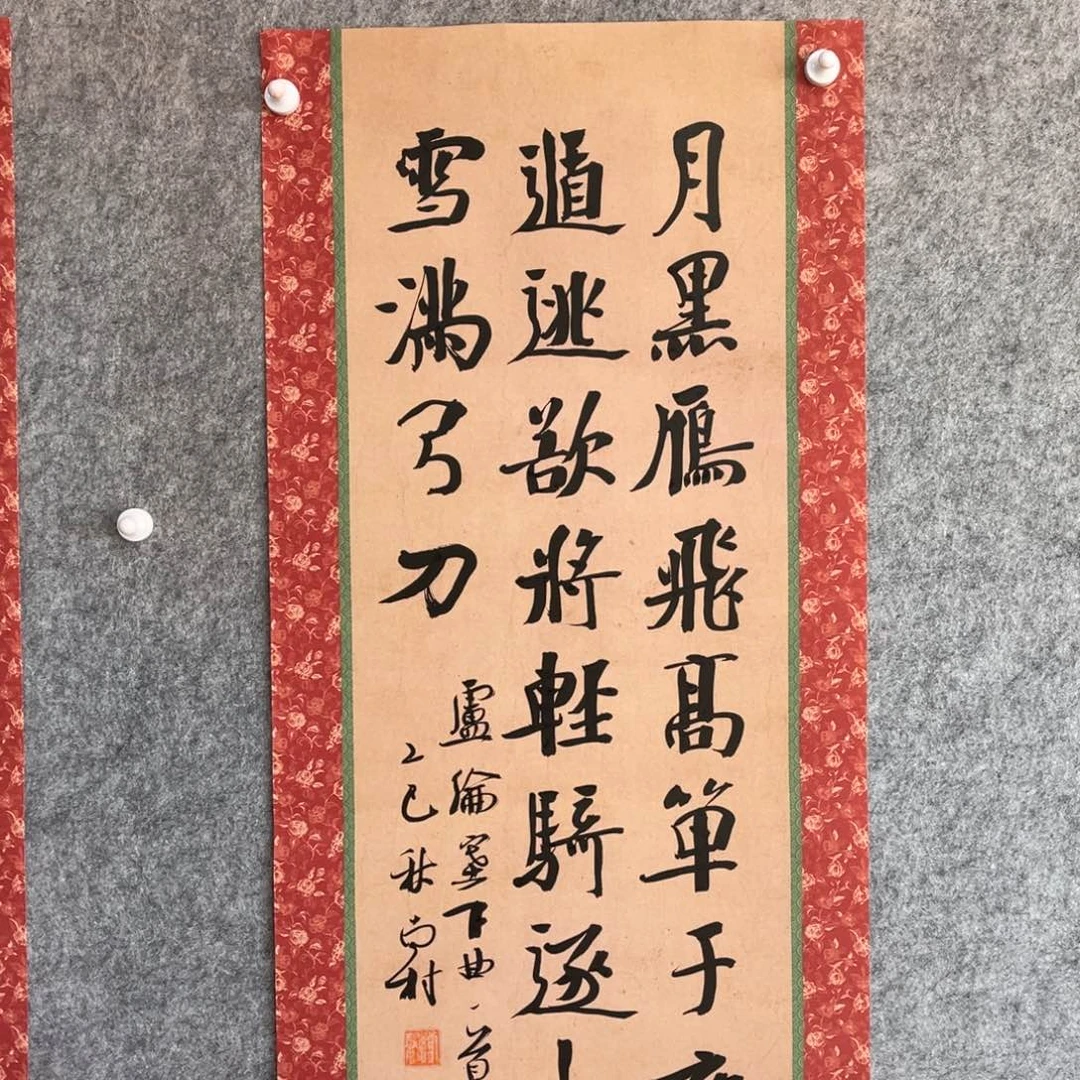 月黑鴈飛髙單于
遁逃欲將輕騎逐
雪滿弓刀
盧綸塞下曲一首
乙巳秋尚村